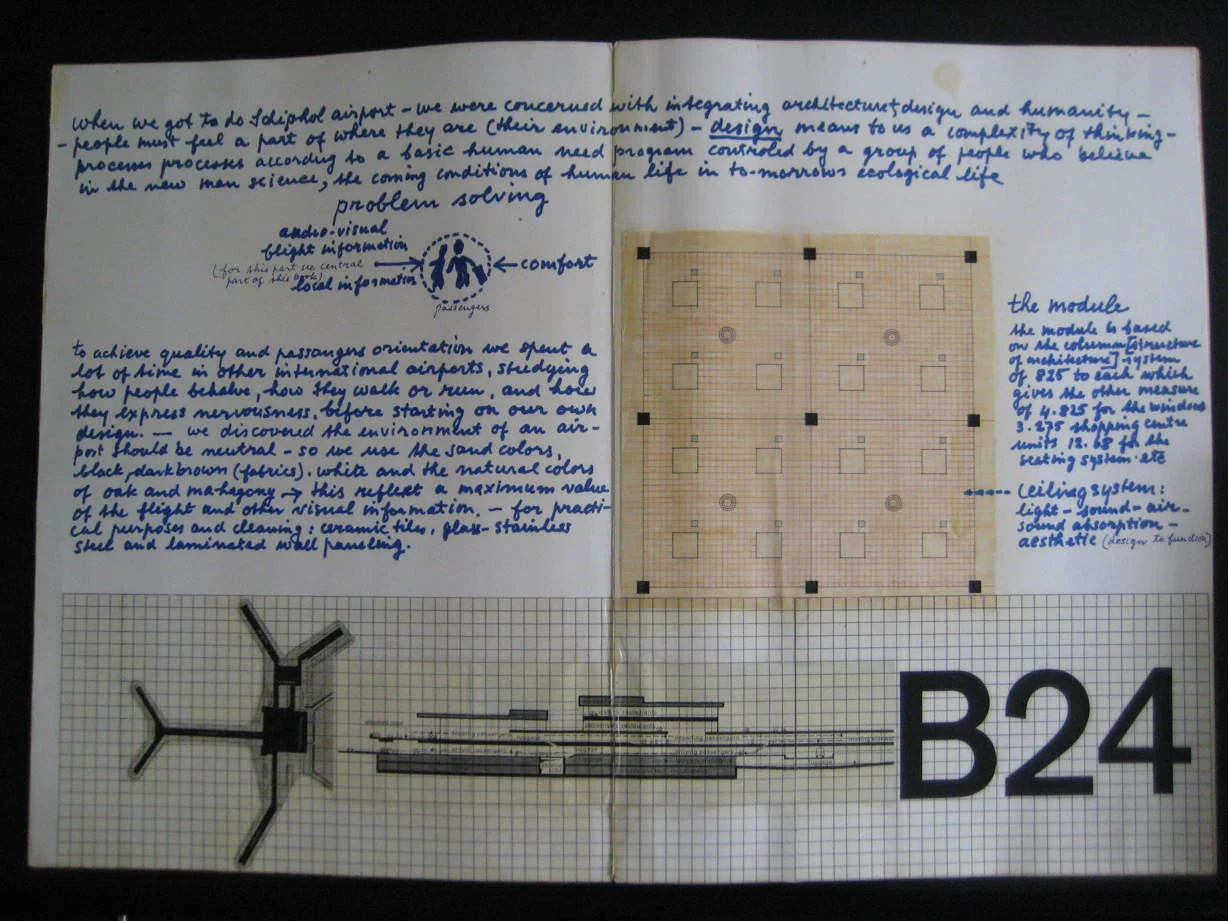 when we got to do Schiphol airport – we were concerned with integrating architecture, design and humanity –
– people must feel a part of where they are (their environment) – design means to us a complexity of thinking –
processes processes according to a basic human need program controled by a group of people who believe
in the new man science, the coming conditions of human life in to-morrows ecological life
problem solving
audio-visual
flight information
(for this part see central
part of this book)
local information
passengers
comfort
to achieve quality and passangers orientation we spent a
lot of time in other international airports, studying
how people behave, how they walk or run, and how
they express nervousness, before starting on our own
design. – we discovered the environment of an air-
port should be neutral – so we use the sand colors,
black, dark brown (fabrics). white and the natural colors
of oak and mahogony → this reflect a maximum value
of the flight and other visual information. – for practi-
cal purposes and cleaning: ceramic tiles, glass-stainless
steel and laminated wall paneling.
the module
the module is based
on the column [structure
of architecture] system
of 825 to each which
gives the other measure
of 4.825 for the windows
3.275 shopping centre
units 12.68 for the
seating system. etc
ceiling system:
light – sound – air –
sound absorption –
aesthetic (design to function)
B24